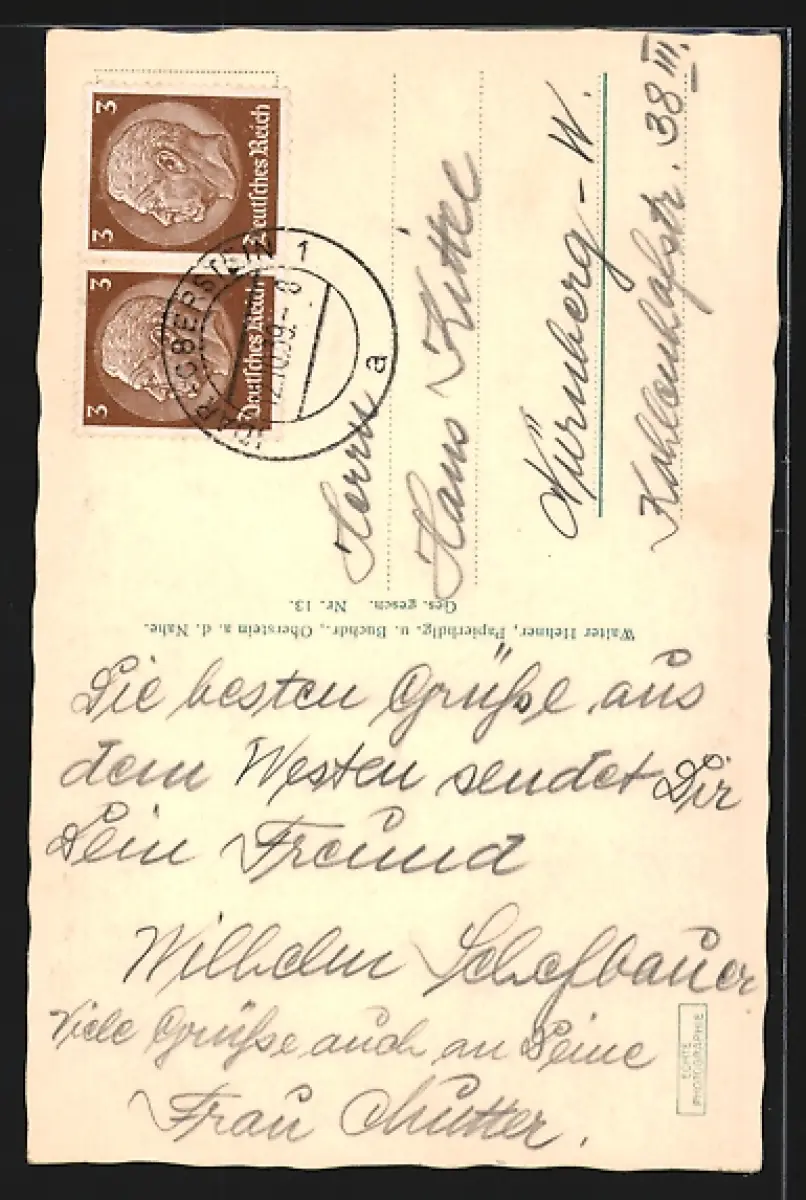 3 3 Deutsches Reich
3 3 Deutsches Reich
IDAR-OBERSTEIN 1
12.10.39.- 8
a
Herrn
Hans Kittel
Nürnberg-W.
38 III.
Ges. gesch. Nr. 13.
Walter Hehner, Papierhdlg. u. Buchdr., Oberstein a. d. Nahe.
Die besten Grüße aus
dem Westen sendet Dir
Dein Freund
Wilhelm
Viele Grüße auch an Deine
Frau Mutter.
ECHTE
PHOTOGRAPHIE